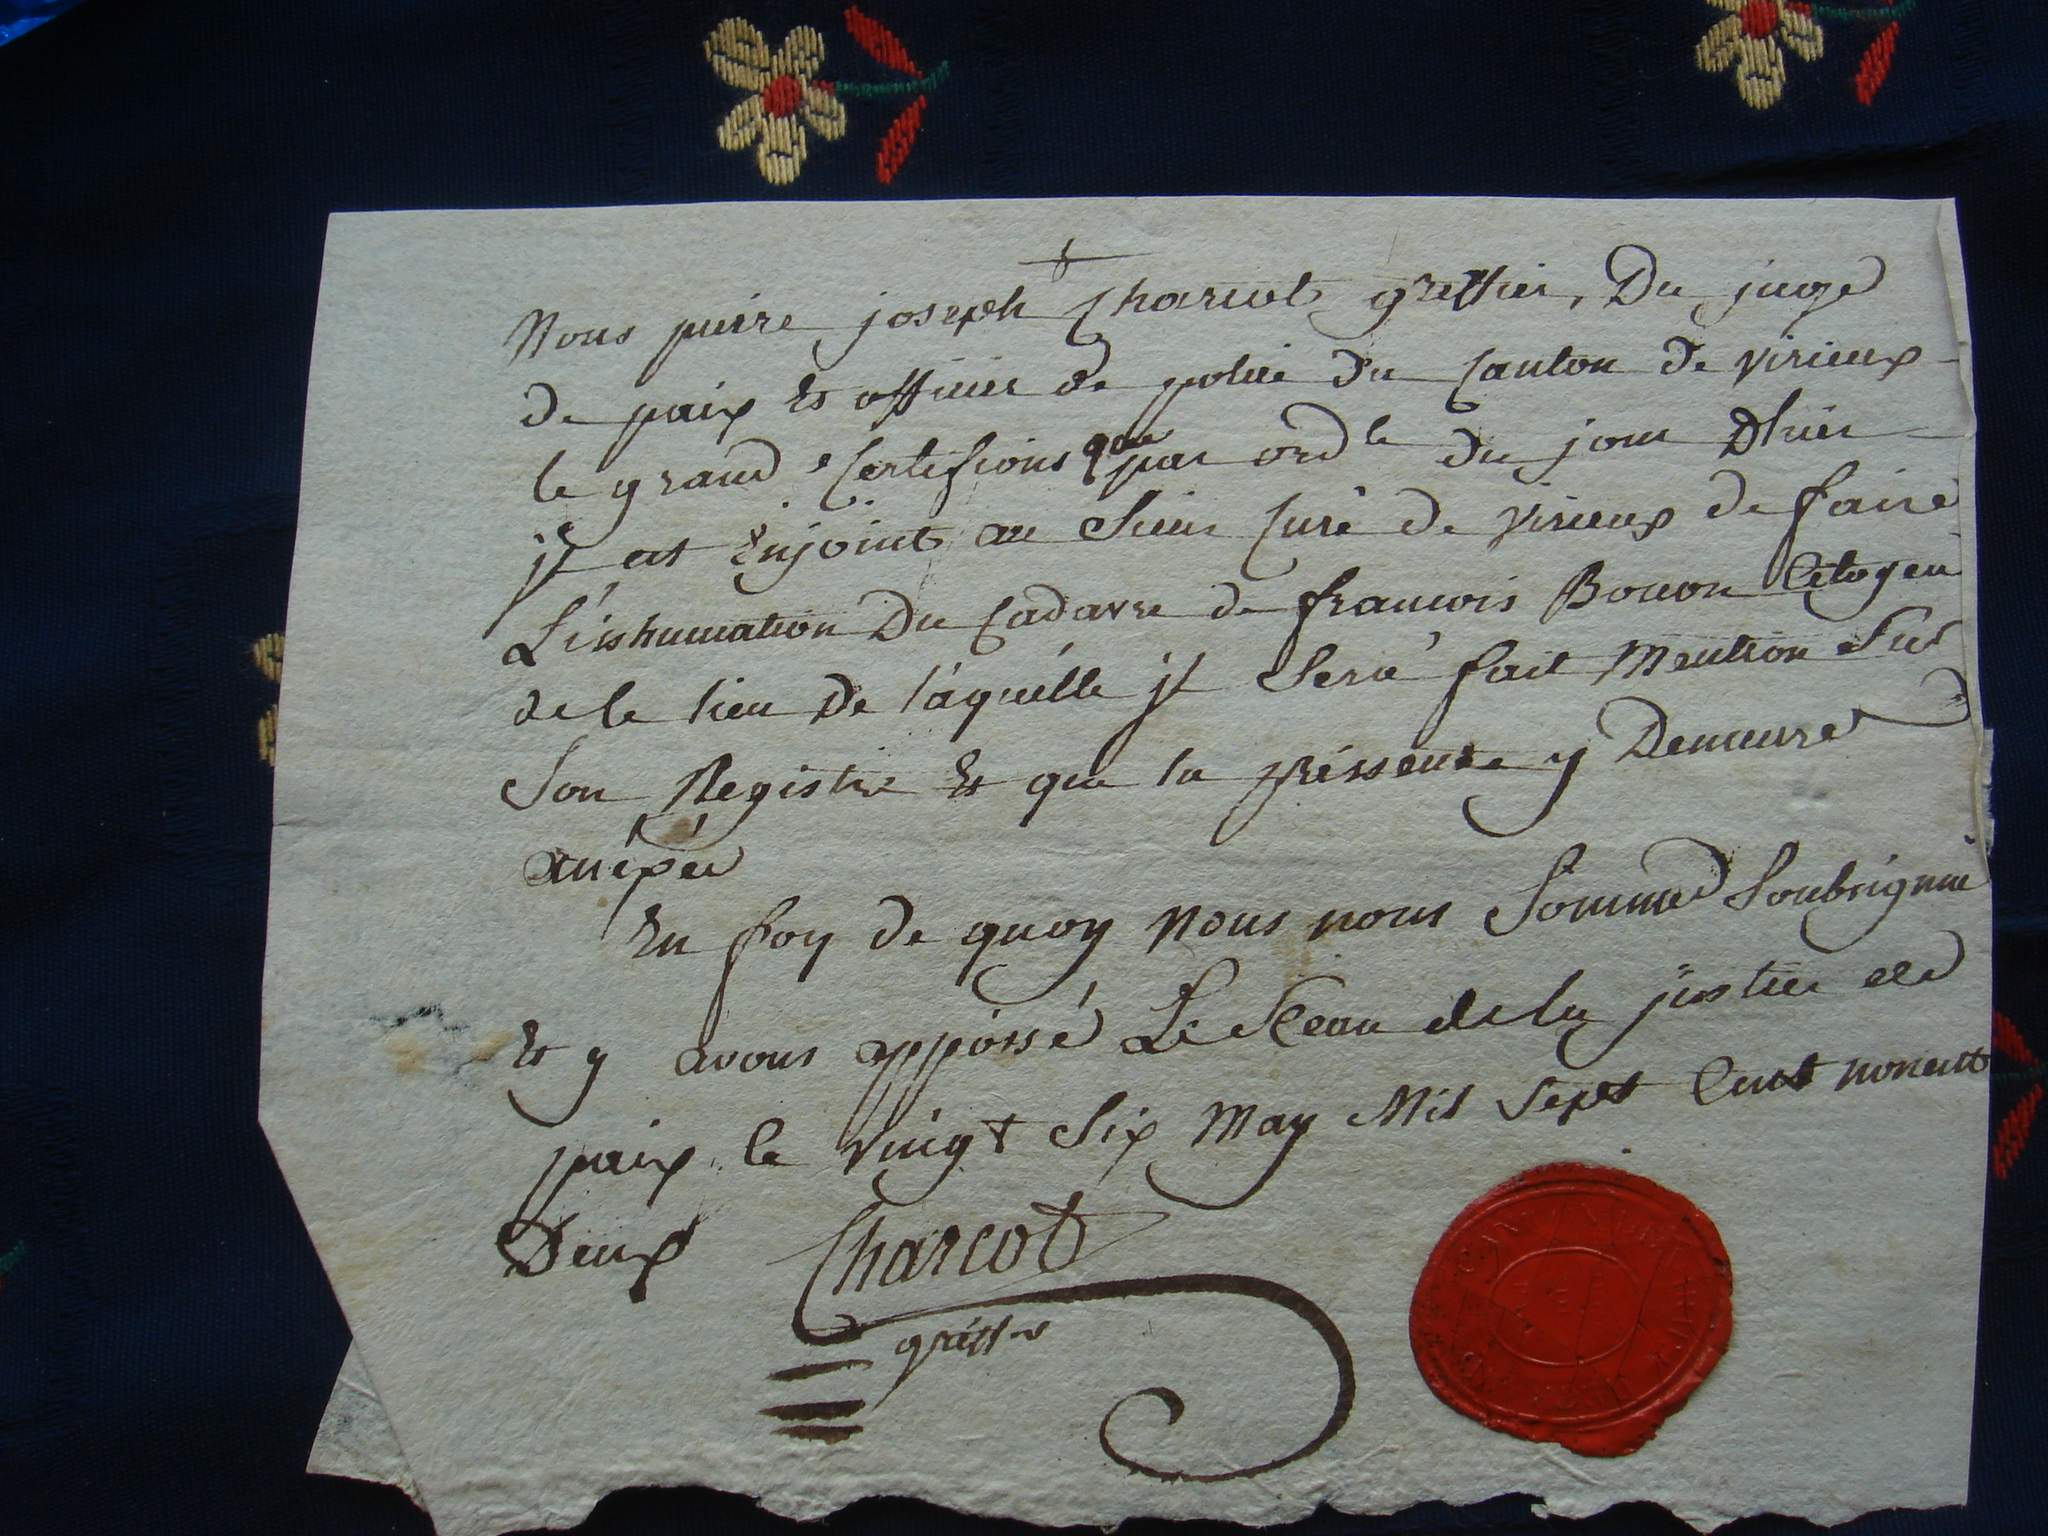 Nous pierre joseph Charcot greffier, Du juge
de paix Et officier de police du Canton de virieux
le grand Certifions que par ord.le du jour D'hier
jl est Enjoint au Sieur Curé de virieux de faire
L'inhumation Du Cadavre de francois Bouon Citoyen
de le lieu de laquélle jl Sera fait Mention Sur
Son Registre Et que la préssente y Demeure
anéxée
En foy de quoy Nous nous Sommes Soubsigniié
Et y avons appossé Le Sceau de la justice de
paix le vingt Six May Mil Sept Cent nonente
Deux Charcot
greff.r